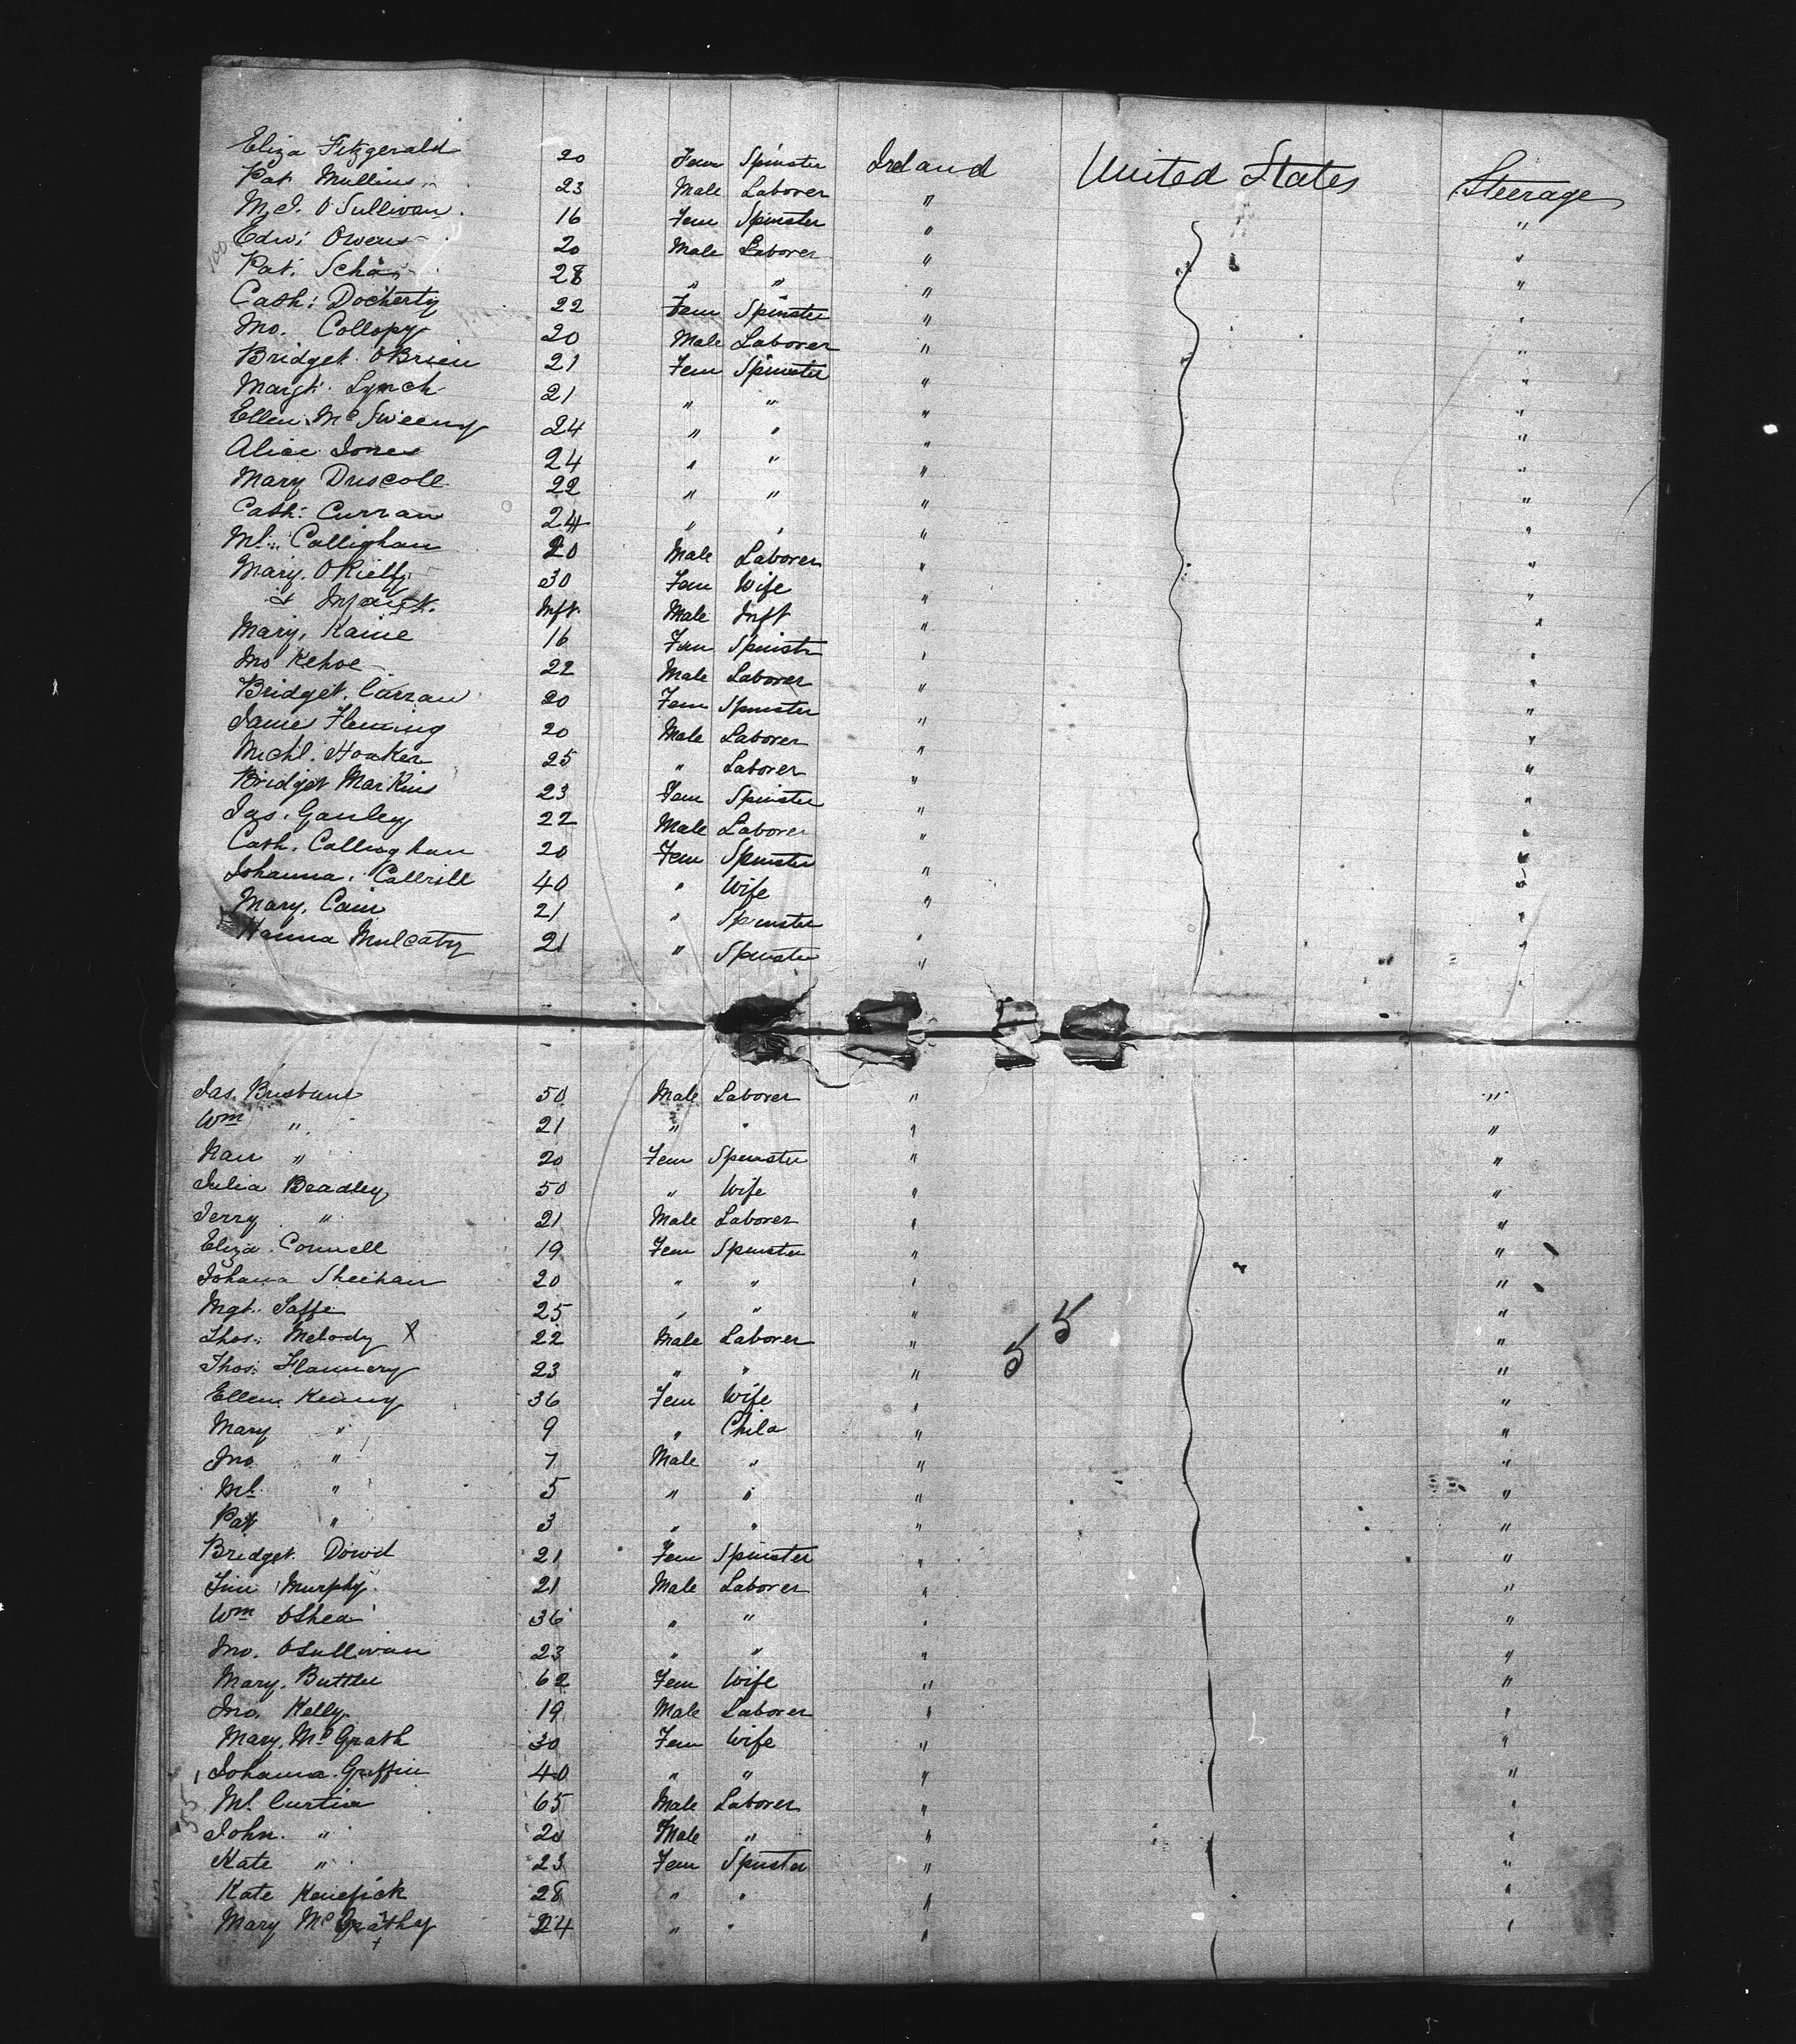 Eliza Fitzgerald 20 Fem Spinster Ireland United States Steerage
Pat Mullins 23 Male Laborer " "
M.J. O'Sullivan 16 Fem Spinster " "
Edw: Owens 20 Male Laborer " "
Pat: 28 " " " "
Cath: Docherty 22 Fem Spinster " "
Jno. Collopy 20 Male Laborer " "
Bridget O'Brien 21 Fem Spinster " "
Margt. Lynch 21 " " " "
Ellen McSweeny 24 " " " "
Alice Jones 24 " " " "
Mary Driscoll 22 " " " "
Cath: Curran 24 " " " "
Ml. Callighan 20 Male Laborer " "
Mary. O'Rielly 30 Fem Wife " "
& Infant. Inft. Male Inft " "
Mary. Kaine 16 Fem Spinstr " "
Jno Kehoe 22 Male Laborer " "
Bridget. Curran 20 Fem Spinster " "
James Fleming 20 Male Laborer " "
Michl. Hooker 25 " Laborer " "
Bridget Markins 23 Fem Spinster " "
Jas. Ganley 22 Male Laborer " "
Cath. Callaghan 20 Fem Spinster " "
Johanna. 40 " Wife " "
Mary. Cain 21 " Spinster " "
Hanna Mulcaty 21 " Spinster " "
Jas. 50 Male Laborer " "
Wm " 21 " " " "
" 20 Fem Spinster " "
Julia Beadley 50 " Wife " "
Jerry " 21 Male Laborer " "
Eliza. Connell 19 Fem Spinster " "
Johana Sheehan 20 " " " "
Mgt. 25 " " " "
Thos: Melody X 22 Male Laborer " 55 "
Thos: Flannery 23 " " " "
Ellen Kenny 36 Fem Wife " "
Mary " 9 " Child " "
Jno " 7 Male " " "
Ml. " 5 " " " "
Pat " 3 " " " "
Bridget. Dowd 21 Fem Spinster " "
Tim Murphy 21 Male Laborer " "
Wm O'Shea 36 " " " "
Jno. O'Sullivan 23 " " " "
Mary. Buttler 62 Fem Wife " "
Jno. Kelly. 19 Male Laborer " "
Mary. McGrath 30 Fem Wife " "
Johanna. Griffin 40 " " " "
Ml. Curtin 65 Male Laborer " "
John. " 20 Male " " "
Kate " 23 Fem Spinster " "
Kate Kenefick 28 " " " "
Mary 24 " " " "